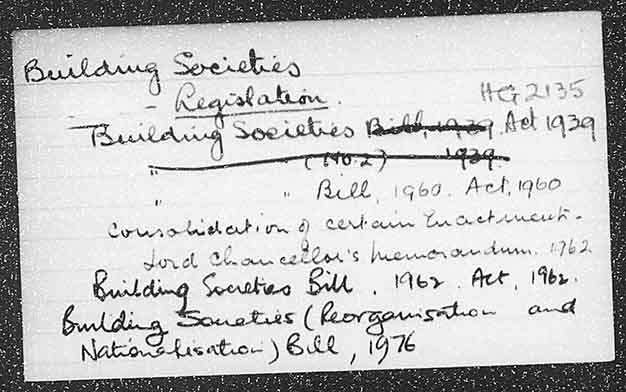 Building Societies
- Legislation. HG 2135
Building Societies Bill, 1939. Act 1939
" (No. 2) 1939.
" " Bill, 1960. Act, 1960
Consolidation of certain Enactments -
Lord Chancellor's Memorandum. 1962
Building Societies Bill, 1962. Act, 1962.
Building Societies (Reorganisation and
Nationalisation) Bill, 1976